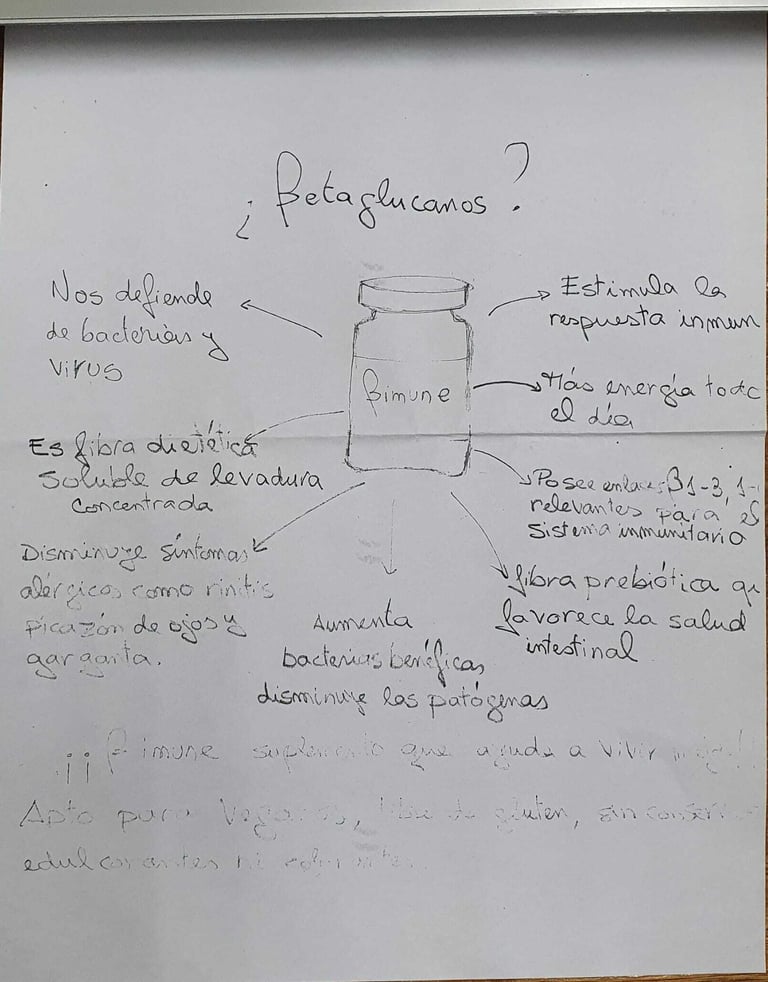 ¿Betaglucanos?
Nos defiende
de bacterias y
virus
Estimula la
respuesta inmun
βimune
Más energía todo
el día
Es fibra dietética
Soluble de levadura
Concentrada
Posee enlaces β1-3, 1-
relevantes para el
Sistema inmunitario
Disminuye síntomas
alérgicos como rinitis
picazón de ojos y
garganta.
fibra prebiótica qu
favorece la salud
intestinal
Aumenta
bacterias benéficas,
disminuye las patógenas
¡¡βimune suplemento que ayuda a vivir
Apto para Veganos, libre de gluten, sin conser
edulcorantes ni colorantes.